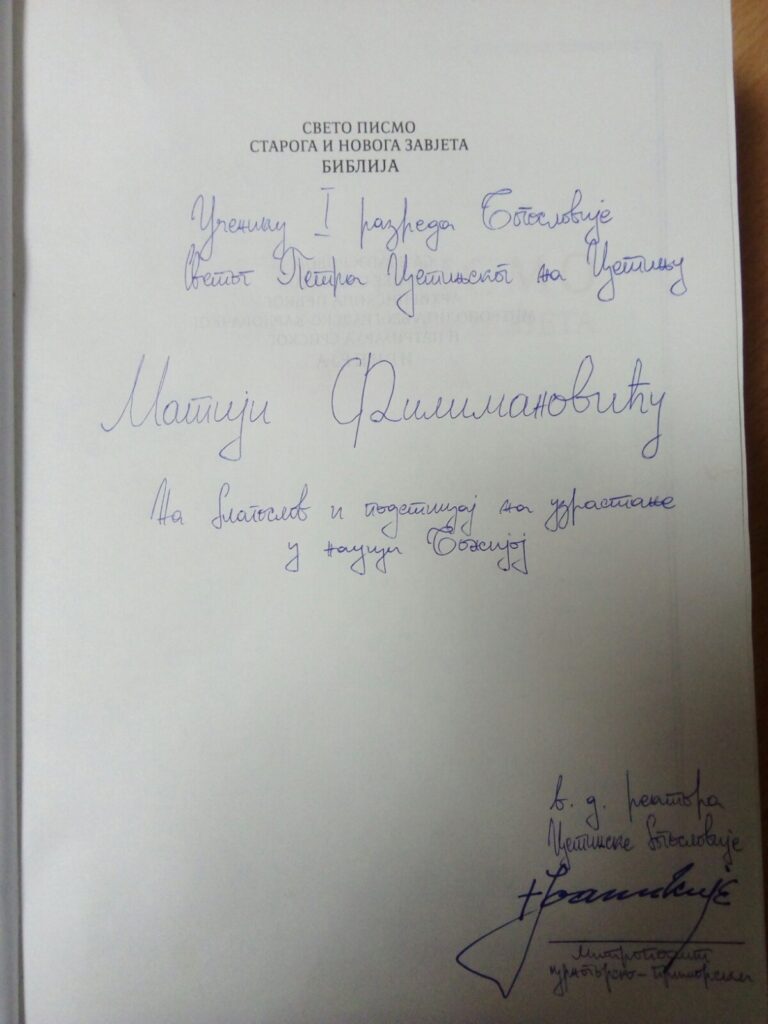 СВЕТО ПИСМО
СТАРОГА И НОВОГА ЗАВЈЕТА
БИБЛИЈА
Ученику I разреда Богословије
Светог Петра Цетињског на Цетињу
Матији Филимановићу
На благослов и подстицај на узрастање
у науци Божијој
в. д. ректора
Цетињске богословије
+Јоаникије
Митрополит
црногорско-приморски